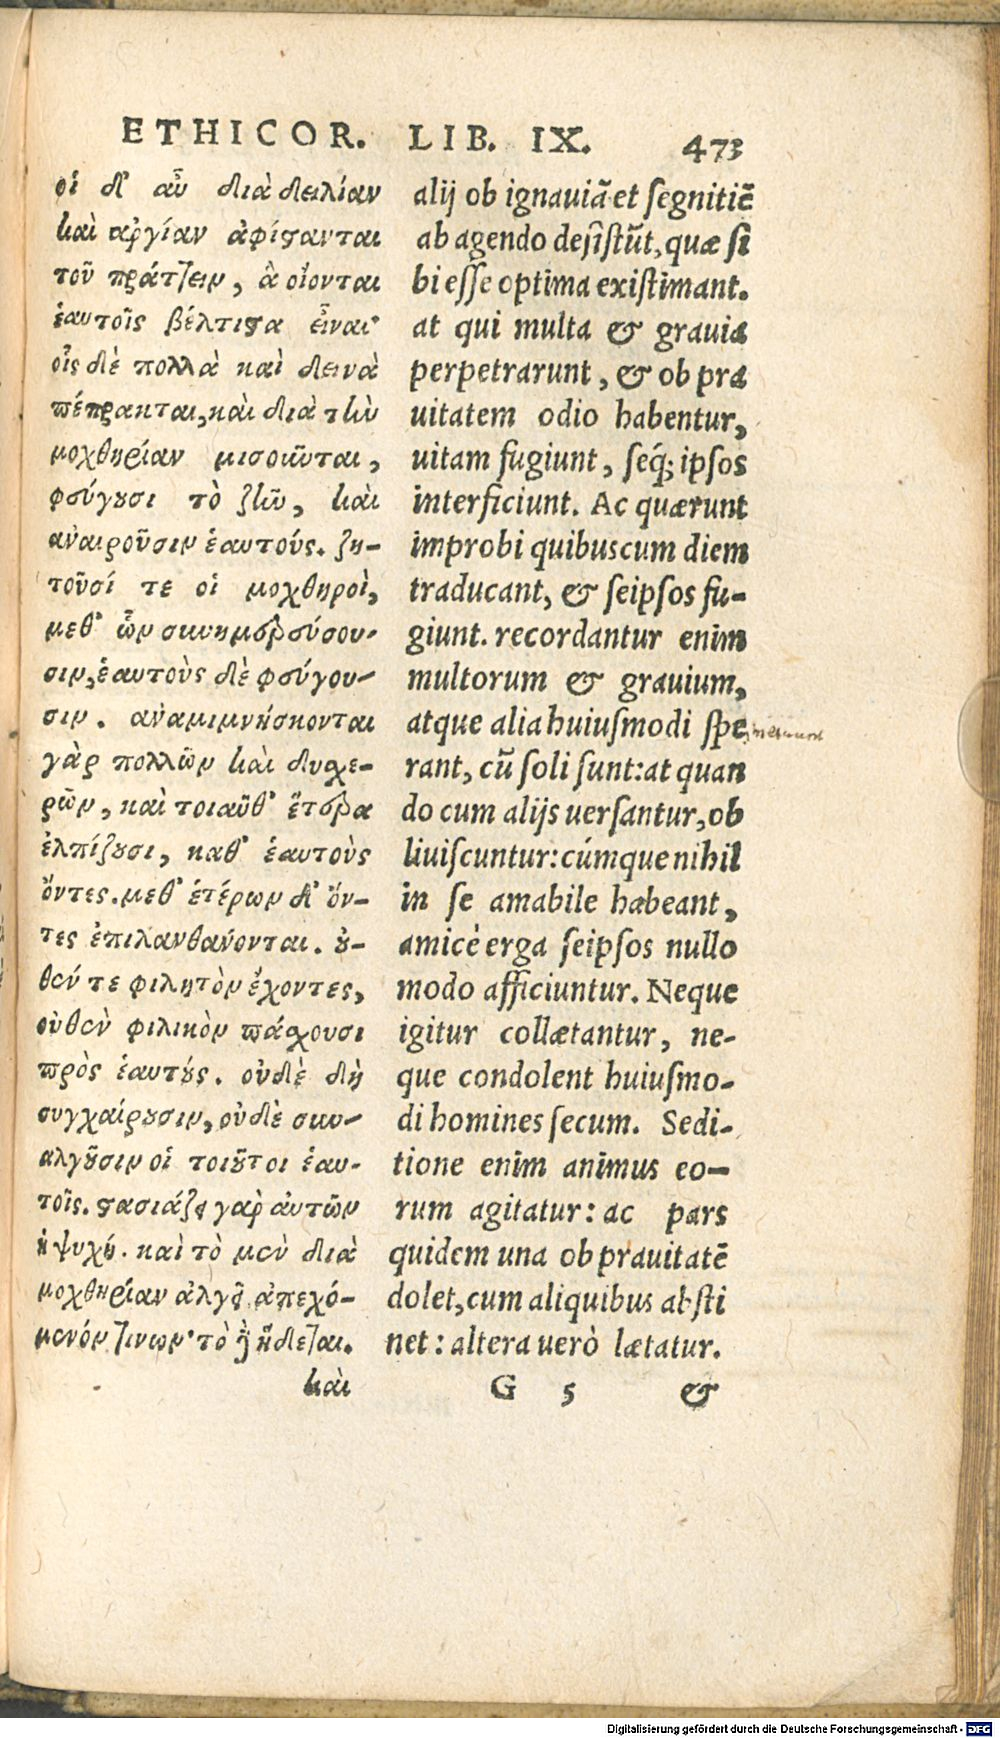 ETHICOR. LIB. IX. 473
οἱ δ' αὖ διὰ δειλίαν
καὶ ἀργίαν ἀφίστανται
τοῦ πράττειν, ἃ οἴονται
ἑαυτοῖς βέλτιστα εἶναι·
οἷς δὲ πολλὰ καὶ δεινὰ
πέπρακται, καὶ διὰ τὴν
μοχθηρίαν μισοῦνται,
φεύγουσι τὸ ζῆν, καὶ
ἀναιροῦσιν ἑαυτούς. ζη-
τοῦσί τε οἱ μοχθηροὶ,
μεθ' ὧν συνημερεύσου-
σιν, ἑαυτοὺς δὲ φεύγου-
σιν. ἀναμιμνήσκονται
γὰρ πολλῶν καὶ δυσχε-
ρῶν, καὶ τοιαῦθ' ἕτερα
ἐλπίζουσι, καθ' ἑαυτοὺς
ὄντες. μεθ' ἑτέρων δ' ὄν-
τες ἐπιλανθάνονται. οὐ-
θέν τε φιλητὸν ἔχοντες,
οὐθὲν φιλικὸν πάσχουσι
πρὸς ἑαυτούς. οὐδὲ δὴ
συγχαίρουσιν, οὐδὲ συν-
αλγοῦσιν οἱ τοιοῦτοι ἑαυ-
τοῖς. στασιάζει γὰρ αὐτῶν
ἡ ψυχή. καὶ τὸ μὲν διὰ
μοχθηρίαν ἀλγεῖ ἀπεχό-
μενόν τινων· τὸ δὲ ἥδεται.
καὶ
alij ob ignauiā et segnitiē
ab agendo desistūt, quæ si
bi esse optima existimant.
at qui multa & grauia
perpetrarunt, & ob pra
uitatem odio habentur,
uitam fugiunt, seq; ipsos
interficiunt. Ac quærunt
improbi quibuscum diem
traducant, & seipsos fu-
giunt. recordantur enim
multorum & grauium,
atque alia huiusmodi spe
rant, cū soli sunt: at quan
do cum alijs uersantur, ob
liuiscuntur: cúmque nihil
in se amabile habeant,
amicè erga seipsos nullo
modo afficiuntur. Neque
igitur collætantur, ne-
que condolent huiusmo-
di homines secum. Sedi-
tione enim animus eo-
rum agitatur: ac pars
quidem una ob prauitatē
dolet, cum aliquibus absti
net: altera uerò lætatur.
G 5 &
Digitalisierung gefördert durch die Deutsche Forschungsgemeinschaft - DFG